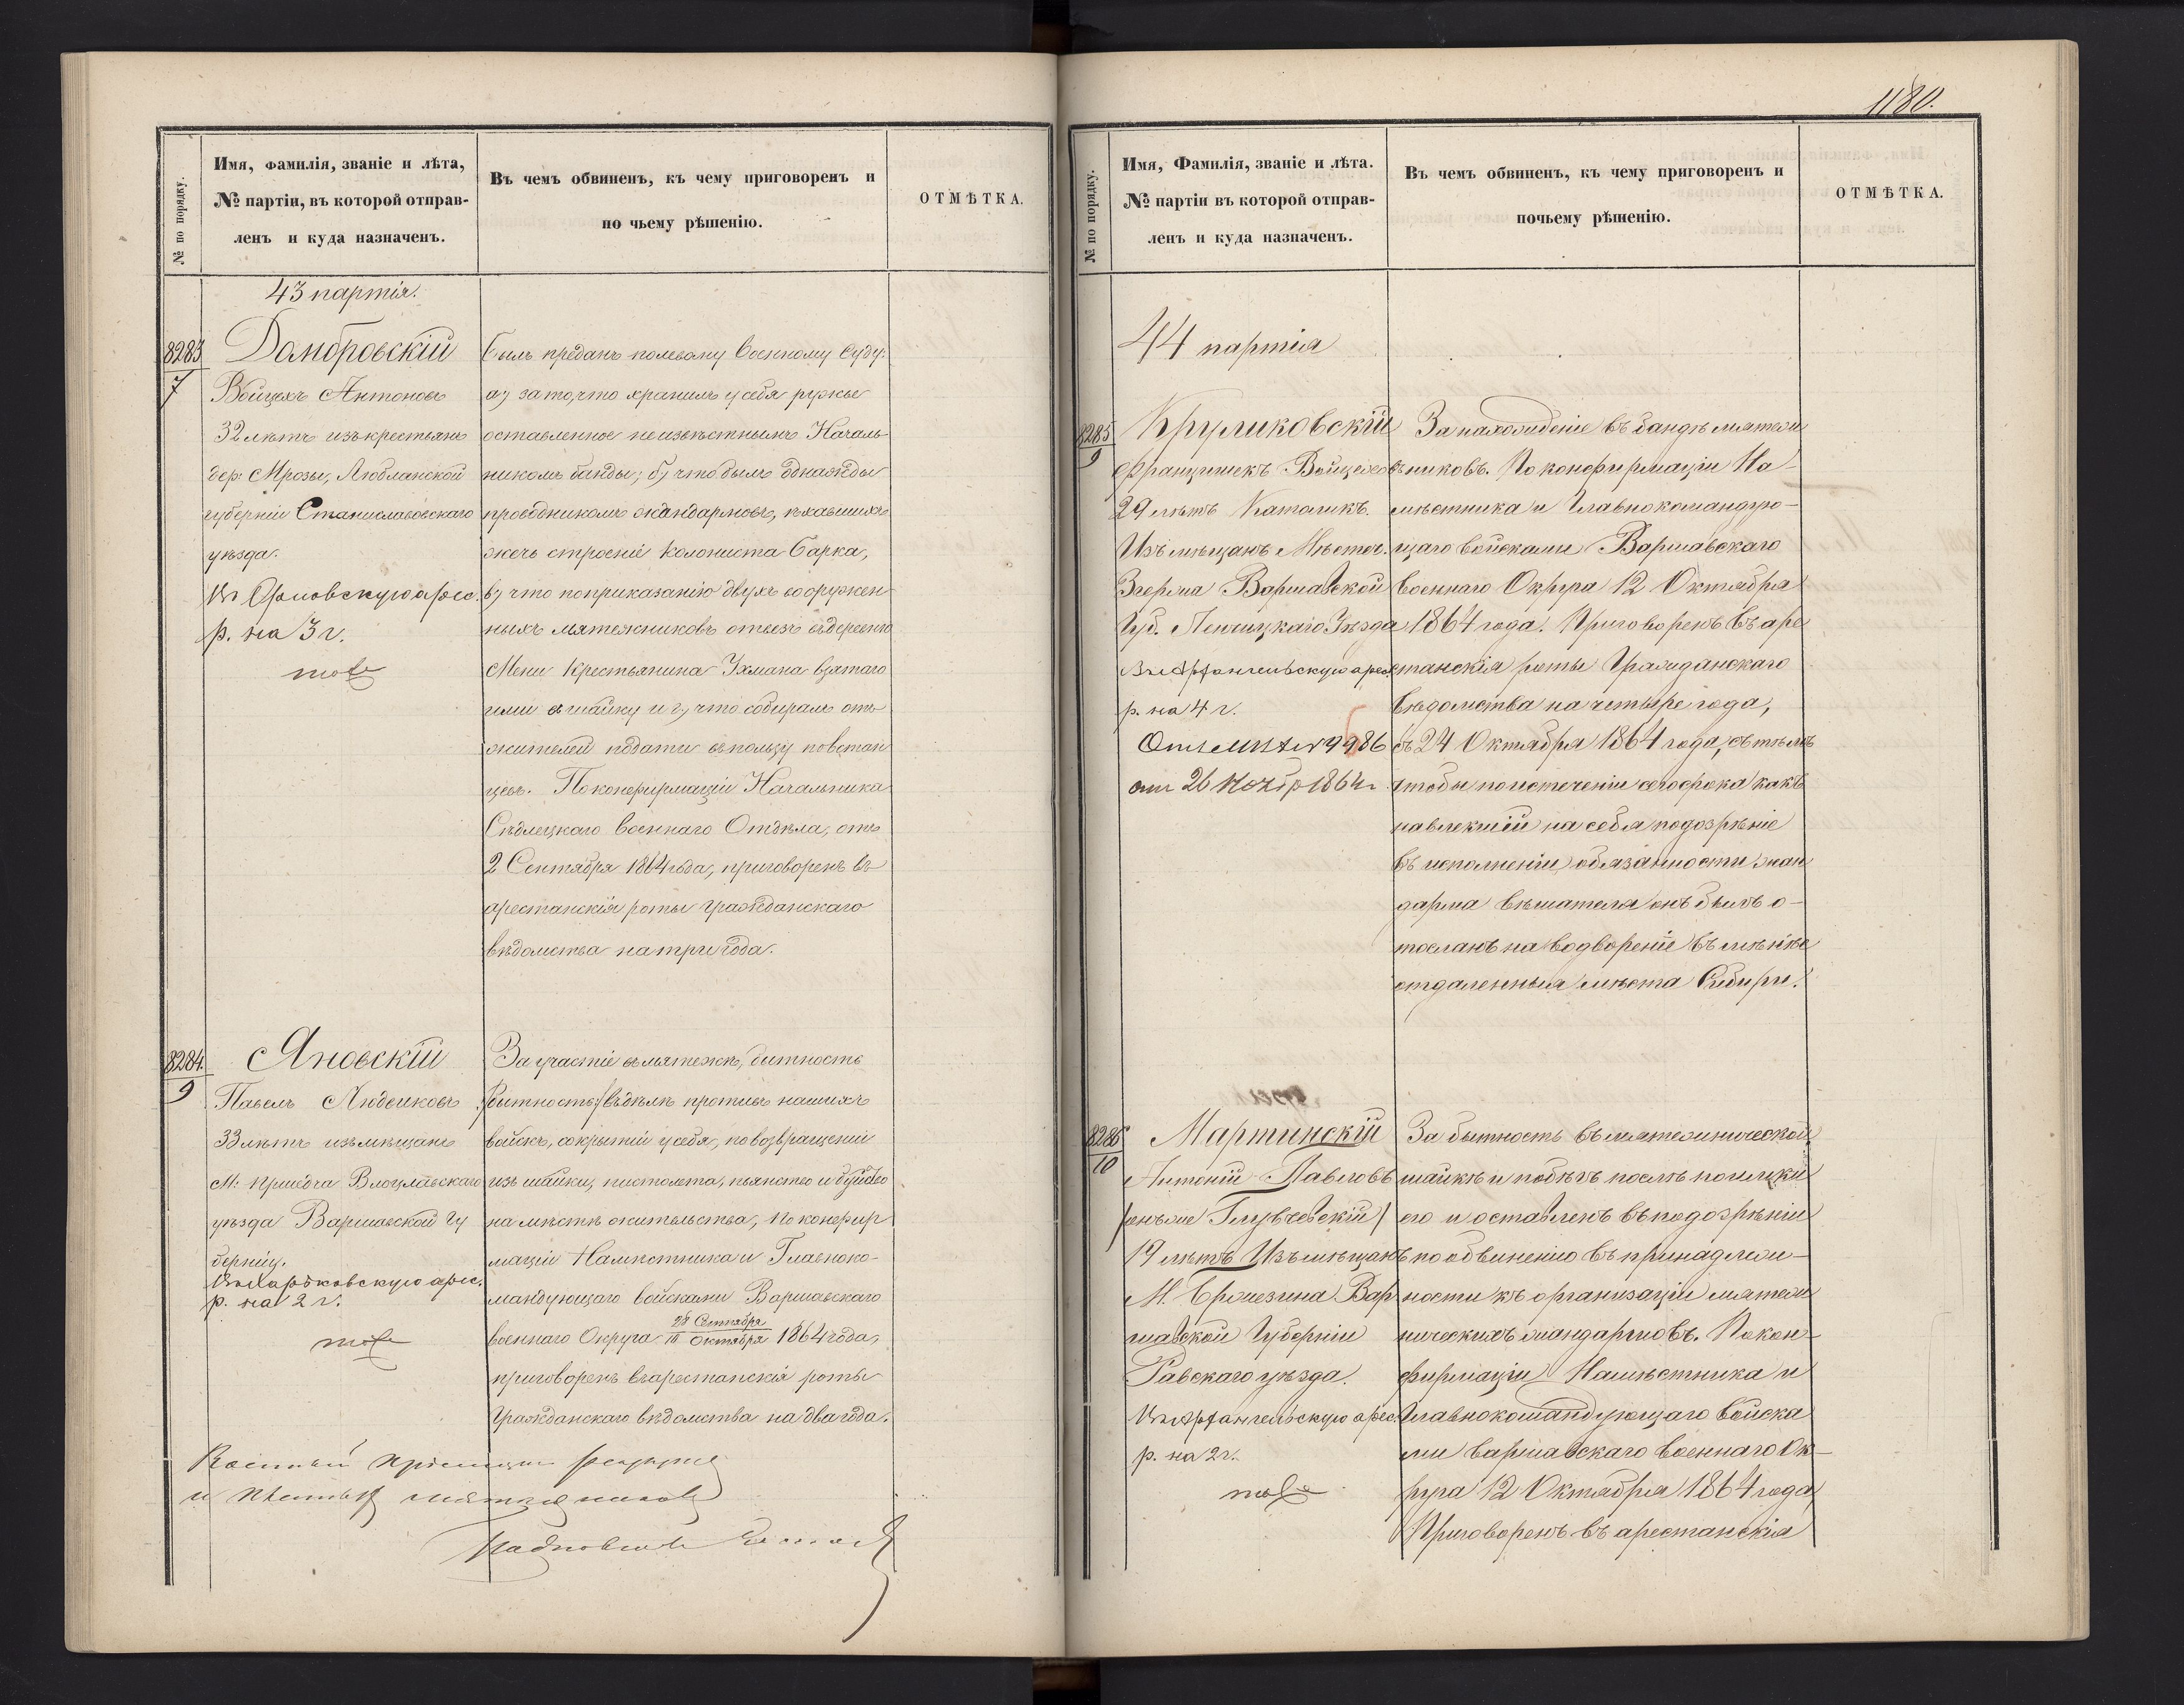 1180.
№ по порядку.
Имя, фамилія, званіе и лѣта,
№ партіи, въ которой отправ-
ленъ и куда назначенъ.
Въ чемъ обвиненъ, къ чему приговоренъ и
по чьему рѣшенію.
ОТМѢТКА.
43 партія.
8283
7
Домбровскій
Войцехъ Антоновъ
32 лѣтъ изъ крестьянъ
дер: Мрозы, Люблинской
губерніи Станиславовскаго
уѣзда.
арес.
р. на 3 г.
тоже
Былъ преданъ полевому военному суду:
а) за то, что хранилъ у себя ружье
оставленное неизвѣстнымъ Началь-
никомъ банды; б) что былъ однажды
проводникомъ жандармовъ, ѣхавшихъ
жечь строеніе колониста Барка,
в) что по приказанію двухъ вооружен-
ныхъ мятежниковъ отвезъ въ деревню
Мени крестьянина Ухмана взятаго
ими въ шайку и г) что собиралъ отъ
жителей подати въ пользу повстан
цевъ. По конфирмаціи Начальника
Сѣдлецкаго военнаго Отдѣла, отъ
2 Сентября 1864 года, приговоренъ въ
арестанскія роты гражданскаго
вѣдомства на три года.
8284.
9
Яновскій
Павелъ Людвиковъ
33 лѣтъ изъ мѣщанъ
М: Пршедча Влоцлавскаго
уѣзда Варшавской Гу
берніи.
Въ Харьковскую арес.
р. на 2 г.
тоже
За участіе въ мятежѣ, битность
/бытность/ въ дѣлѣ противъ нашихъ
войскъ, сокрытіи у себя, по возвращеніи
изъ шайки, пистолета, пьянство и буйство
на мѣстѣ жительства, по конфир
маціи Намѣстника и Главноко-
мандующаго войсками Варшавскаго
военнаго Округа 28 Сентября / 10 Октября 1864 года,
приговоренъ въ арестанскія роты
Гражданскаго вѣдомства на два года.
№ по порядку.
Имя, Фамилія, званіе и лѣта.
№ партіи въ которой отправ-
ленъ и куда назначенъ.
Въ чемъ обвиненъ, къ чему приговоренъ и
почьему рѣшенію.
ОТМѢТКА.
44 партія
8285
9
Круликовскій
Францишекъ Войцехо
29 лѣтъ Католикъ.
Изъ мѣщанъ Мѣстеч.
Згержа Варшавской
Губ. Ленчицкаго Уѣзда
Въ Архангельскую арес.
р. на 4 г.
9986
от 26 Ноябр 1864 г
За нахожденіе въ бандѣ мятеж
никовъ. По конфирмаціи На-
мѣстника и Главнокомандую-
щаго войсками Варшавскаго
военнаго Округа 12 Октября
1864 года. Приговоренъ въ аре
станскія роты Гражданскаго
вѣдомства на четыре года,
съ 24 Октября 1864 года, съ тѣмъ
чтобы по истеченіи сего срока какъ
навлекшій на себя подозрѣніе
въ исполненіи обязанности жан
дарма вѣшателя онъ былъ о-
тосланъ на водвореніе въ менѣе
отдаленныя мѣста Сибири.
8286
10
Мартинскій
Антоній Павловъ
/онъ же Глувчевскій/
19 лѣтъ Изъ мѣщанъ
М. Варшавской Губерніи
Равскаго уѣзда.
Въ Архангельскую арес.
р. на 2 г.
тоже
За бытность въ мятежнической
шайкѣ и побѣгъ послѣ поимки
его и оставленъ въ подозрѣніи
по обвиненію въ принадлеж-
ности къ организаціи мятеж
ническихъ жандармовъ. По кон-
фирмаціи Намѣстника и
Главнокомандующаго войска
ми Варшавскаго военнаго Ок-
руга 12 Октября 1864 года
Приговоренъ въ арестанскія